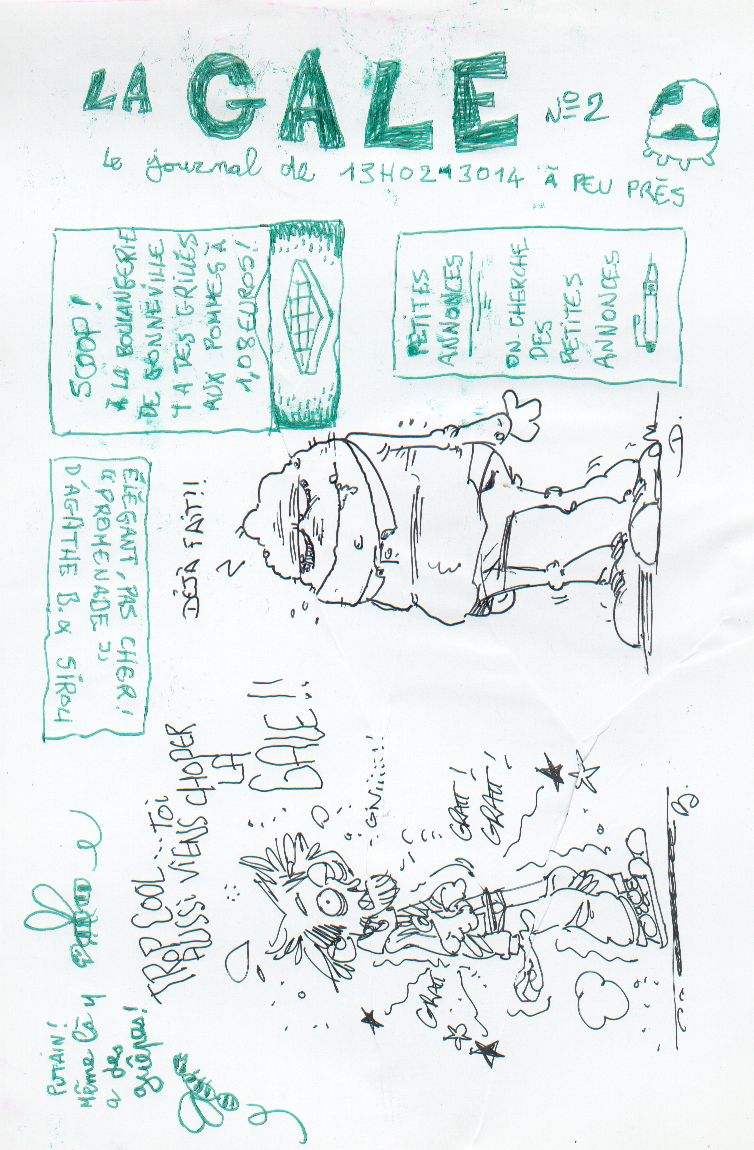 LA GALE Nº2
le journal de 13H02-13014 À PEU PRÈS
SCOOP!
À LA BOULANGERIE
DE BONNEVILLE
Y A DES GRILLÉS
AUX POMMES À
1,08 EUROS!
PETITES
ANNONCES
ON CHERCHE
DES
PETITES
ANNONCES
ÉLÉGANT, PAS CHER!
"PROMENADE"
D'AGATHE B. &
DÉJÀ FAIT!!
PUTAIN!
Même là y
a des
guêpes!
TROP COOL... TOI
AUSSI VIENS CHOPER
LA
GALE!!
GNiiiiii!
GRATT!
GRATT!
GRATT!